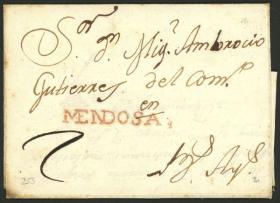 Sor. dn. Migl. Ambrocio
Gutierres del Come.
en
MENDOSA.
2